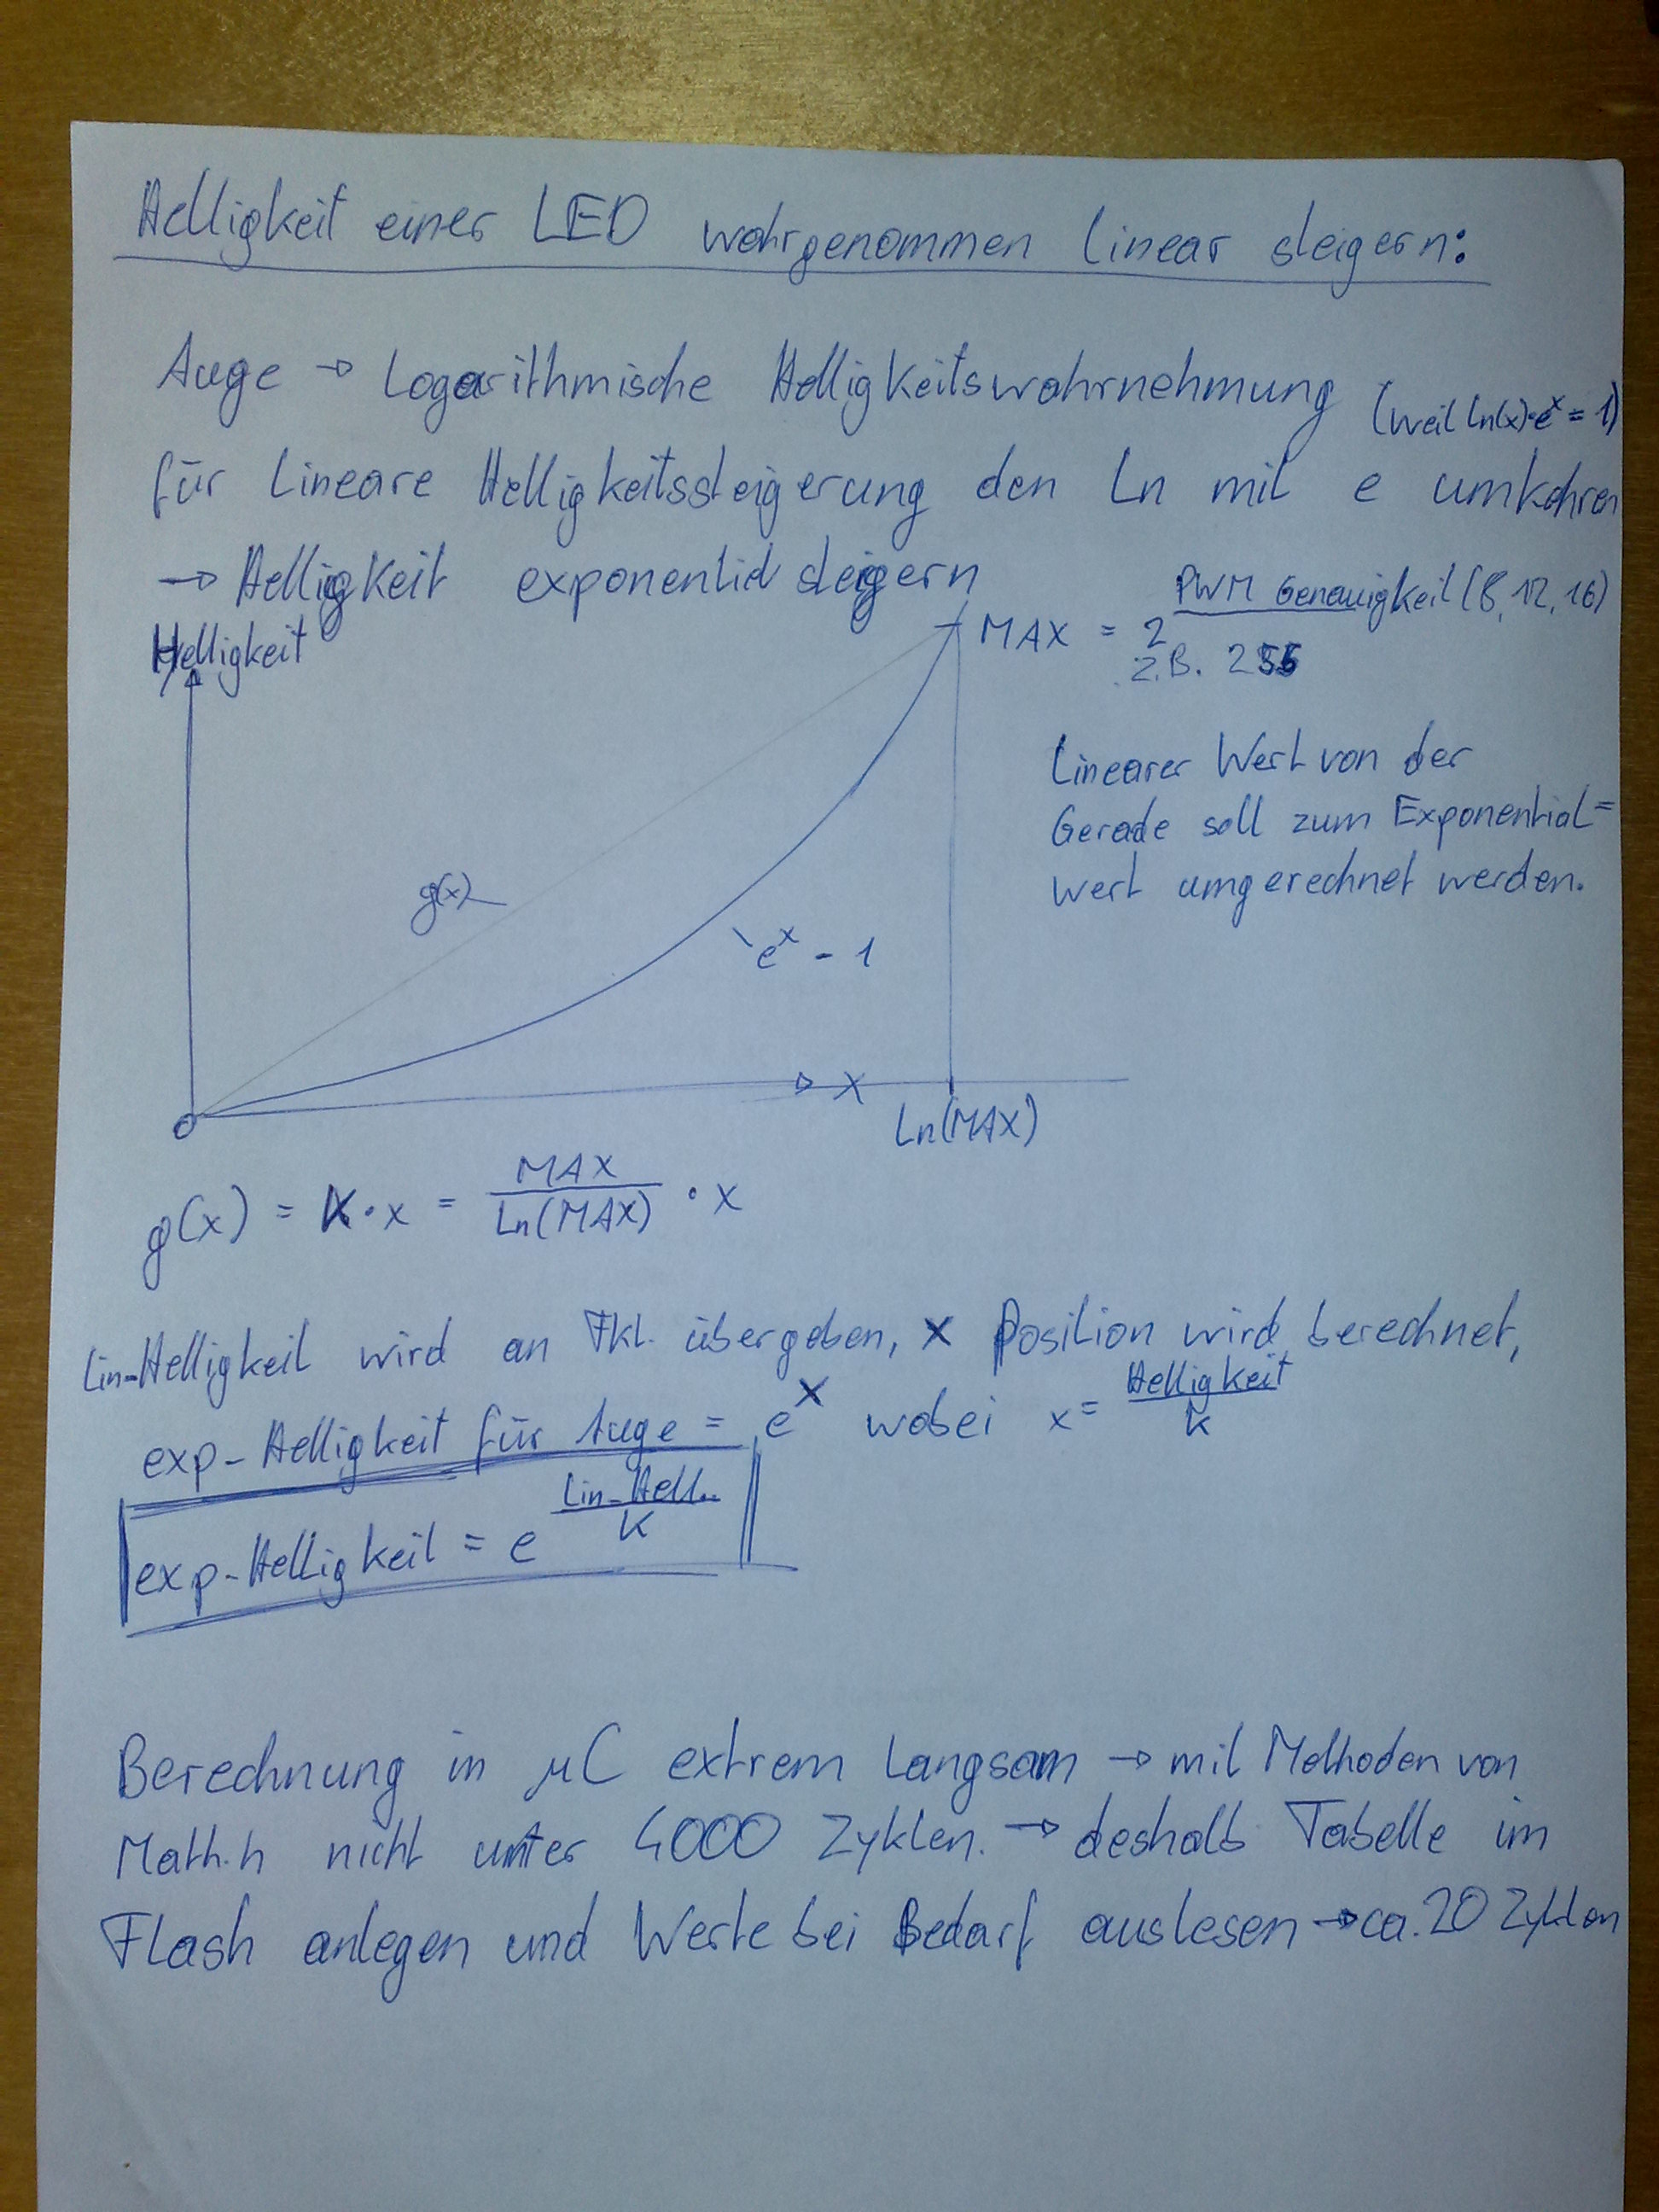 Helligkeit einer LED wahrgenommen linear steigern:
Auge → Logarithmische Helligkeitswahrnehmung (weil ln(x)·e^x = 1)
für Lineare Helligkeitssteigerung den Ln mit e umkehren
→ Helligkeit exponentiel steigern
Helligkeit
MAX = 2^PWM Genauigkeit (8, 12, 16)
z.B. 255
Linearer Wert von der
Gerade soll zum Exponential=
wert umgerechnet werden.
g(x)
e^x - 1
x
Ln(MAX)
0
g(x) = K · x = MAX / Ln(MAX) · x
Lin-Helligkeit wird an Fkt. übergeben, x Position wird berechnet,
exp-Helligkeit für Auge = e^x wobei x = Helligkeit / K
exp-Helligkeit = e^(Lin-Hell.. / K)
Berechnung in µC extrem langsam → mit Methoden von
Math.h nicht unter 4000 Zyklen. → deshalb Tabelle im
Flash anlegen und Werte bei Bedarf auslesen → ca. 20 Zyklen